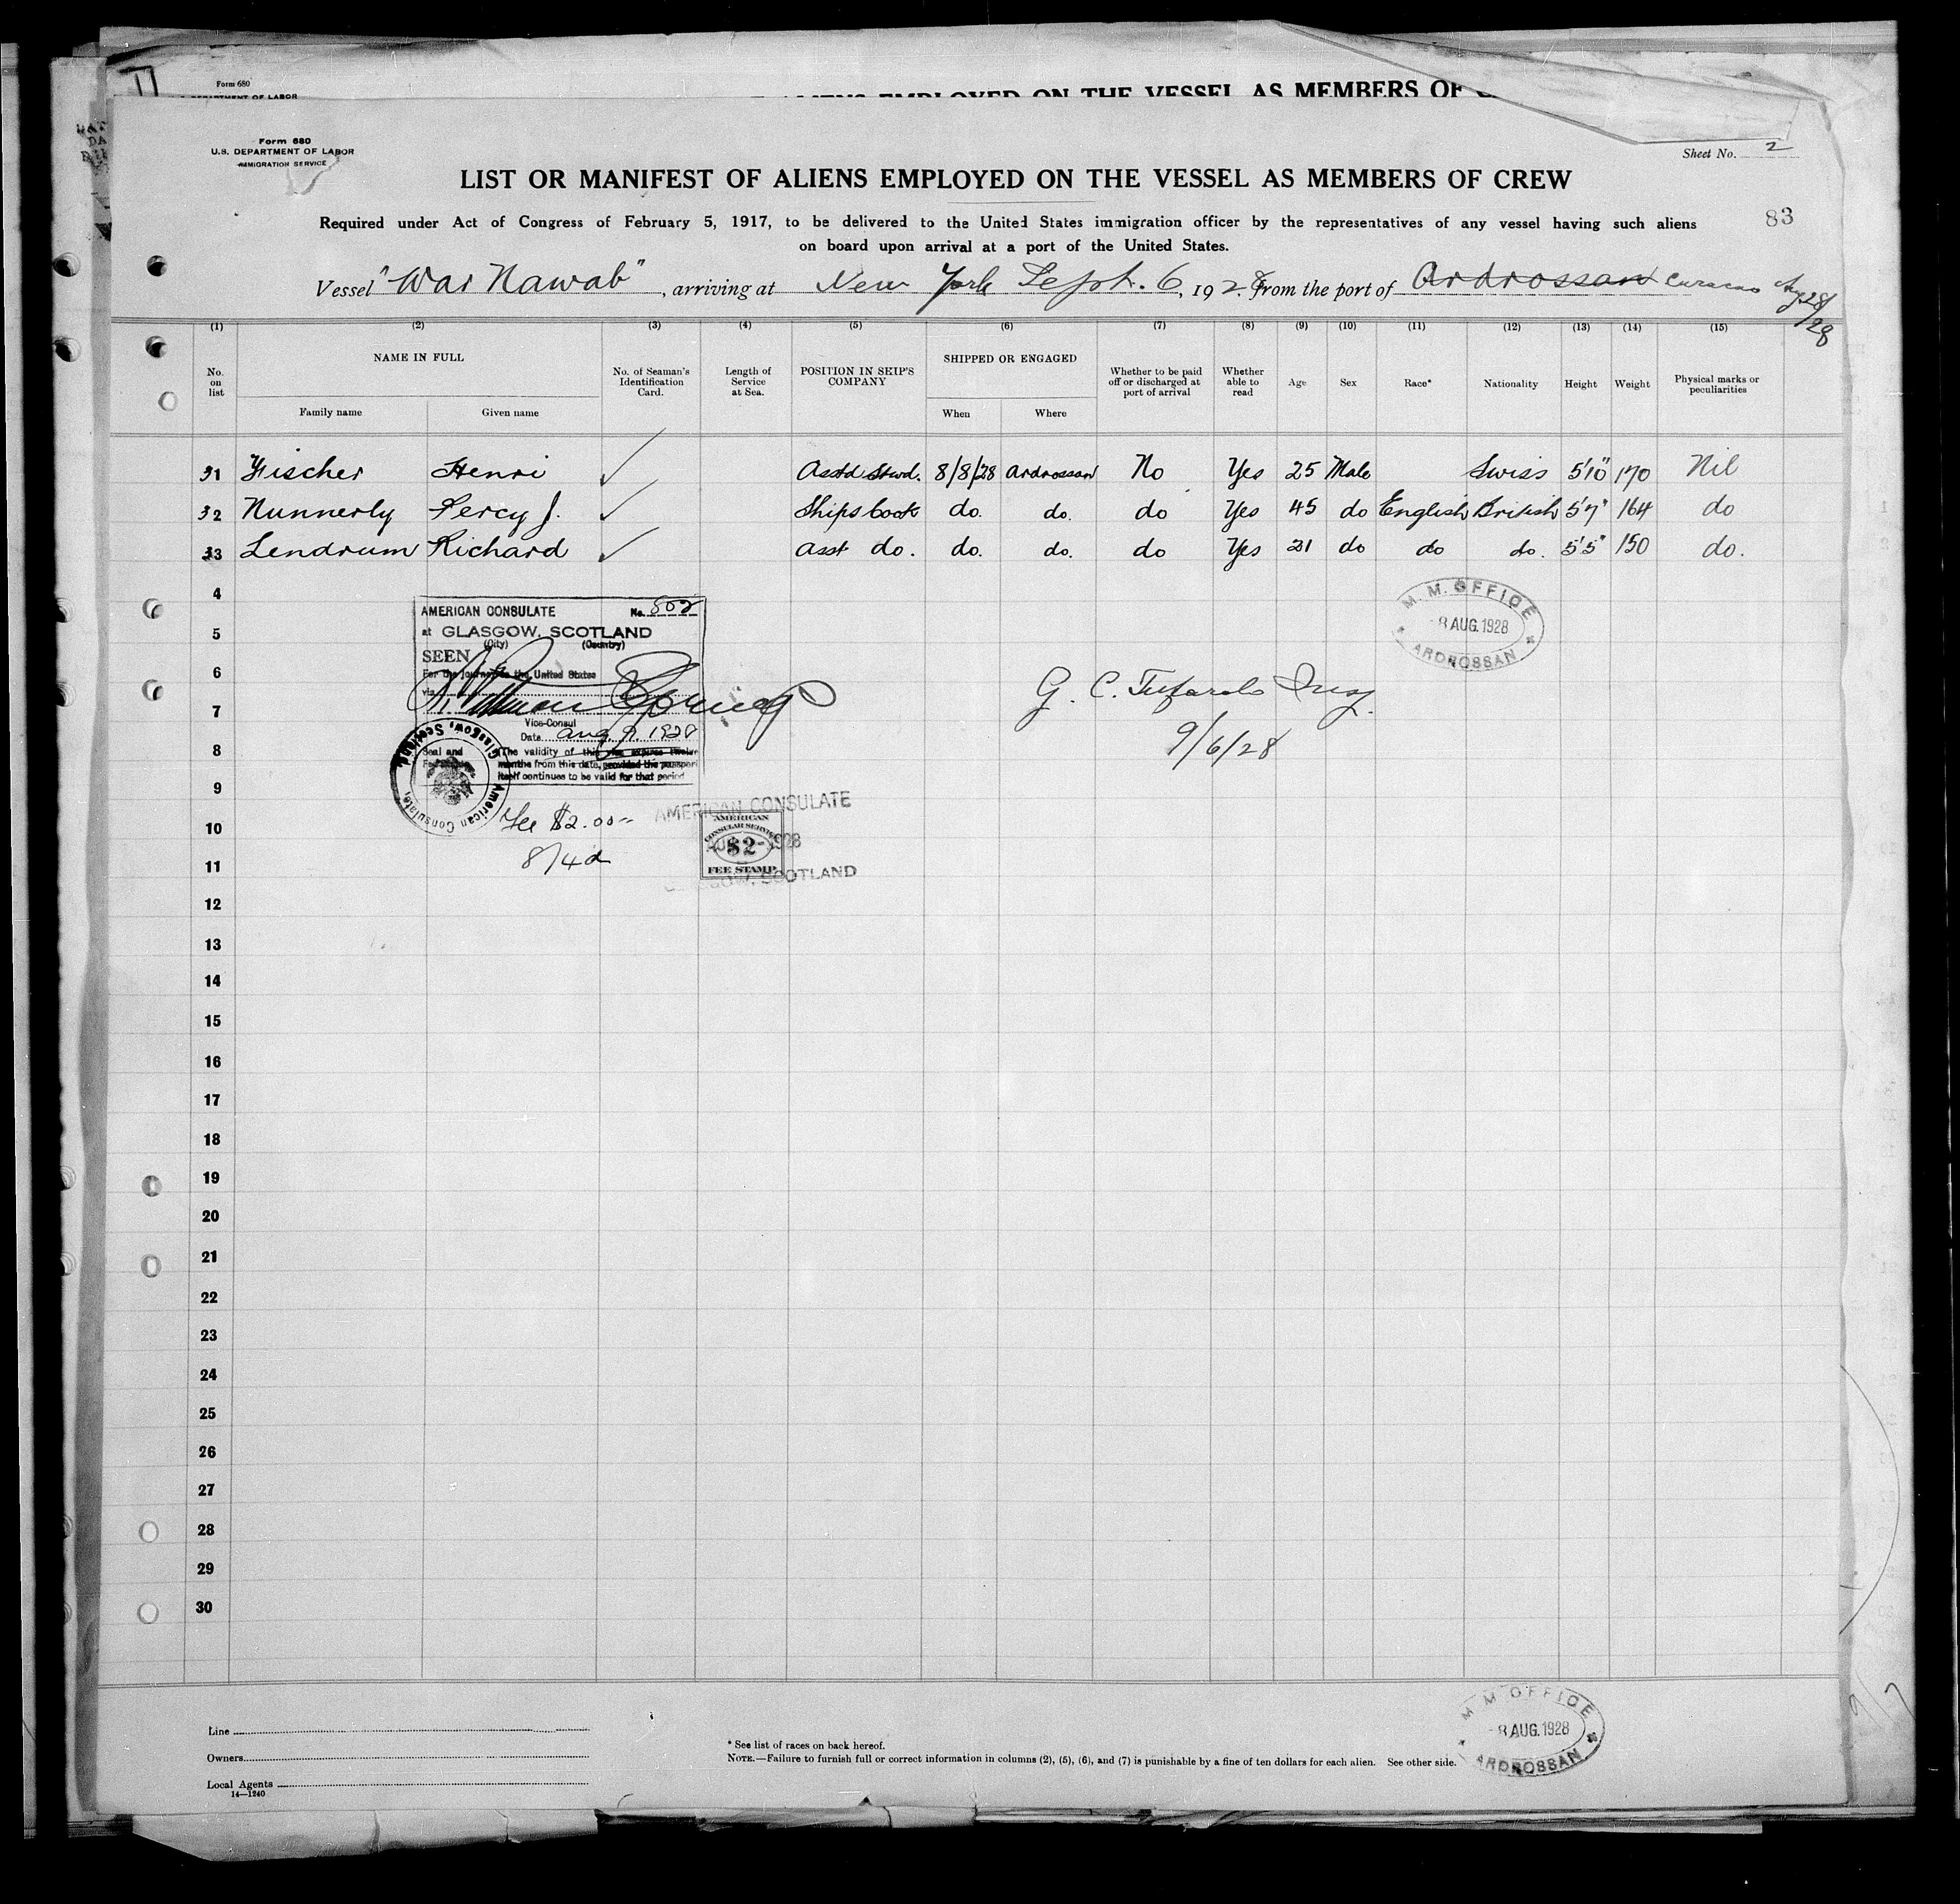 Form 680
DEPARTMENT OF LABOR
ALIENS EMPLOYED ON THE VESSEL AS MEMBERS OF
Form 680
U.S. DEPARTMENT OF LABOR
IMMIGRATION SERVICE
Sheet No. 2
LIST OR MANIFEST OF ALIENS EMPLOYED ON THE VESSEL AS MEMBERS OF CREW
Required under Act of Congress of February 5, 1917, to be delivered to the United States immigration officer by the representatives of any vessel having such aliens
on board upon arrival at a port of the United States.
83
Vessel "War Nawab", arriving at New York Sept. 6, 1928. from the port of Ardrossan Curacao Aug 28/28
(1) (2) (3) (4) (5) (6) (7) (8) (9) (10) (11) (12) (13) (14) (15)
No. on list
NAME IN FULL
Family name
Given name
No. of Seaman's Identification Card.
Length of Service at Sea.
POSITION IN SHIP'S COMPANY
SHIPPED OR ENGAGED
When
Where
Whether to be paid off or discharged at port of arrival
Whether able to read
Age
Sex
Race*
Nationality
Height
Weight
Physical marks or peculiarities
31 Fischer Henri ✓ Asstd Stwd. 8/8/28 Ardrossan No Yes 25 Male Swiss 5'10" 170 Nil
32 Nunnerly Percy J. ✓ Ships Cook do. do. do Yes 45 do English British 5'7" 164 do
33 Lendrum Richard ✓ Asst do. do. do. do Yes 21 do do do. 5'5" 150 do.
4
5
6
7
8
9
10
11
12
13
14
15
16
17
18
19
20
21
22
23
24
25
26
27
28
29
30
AMERICAN CONSULATE No. 502
at GLASGOW, SCOTLAND
(City) (Country)
SEEN
For the journey to the United States
via
Vice-Consul
Date Aug. 9. 1928
Seal and
The validity of this visa expires twelve
months from this date, provided the passport
itself continues to be valid for that period
American Consulate, Glasgow, Scotland
Fee $2.00
8/4d
AMERICAN CONSULATE
AMERICAN
CONSULAR SERVICE
$2
FEE STAMP
1928
GLASGOW, SCOTLAND
M. M. OFFICE
8 AUG. 1928
ARDROSSAN
G. C. Tufarolo Insp.
9/6/28
Line
Owners
Local Agents
14—1240
* See list of races on back hereof.
NOTE.—Failure to furnish full or correct information in columns (2), (5), (6), and (7) is punishable by a fine of ten dollars for each alien. See other side.
M M OFFICE
8 AUG. 1928
ARDROSSAN